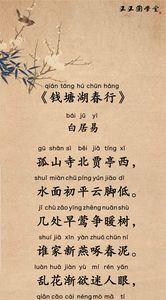 王玉圈学堂
qián táng hú chūn háng
《钱塘湖春行》
bái jū yì
白居易
gū shān sì běi jiǎ tíng xī
孤山寺北贾亭西，
shuǐ miàn chū píng yún jiǎo dī
水面初平云脚低。
jǐ chù zǎo yīng zhēng nuǎn shù
几处早莺争暖树，
shuí jiā xīn yàn zhuó chūn ní
谁家新燕啄春泥。
luàn huā jiàn yù mí rén yǎn
乱花渐欲迷人眼，
qiǎn cǎo cái néng mò mǎ tí